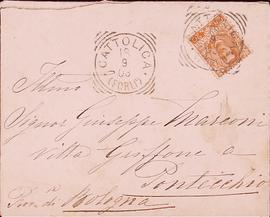 CATTOLICA
16
9
03
(FORLI)
Illmo
Signor Giuseppe Marconi
Villa Griffone a
Pontecchio
Prov. di Bologna